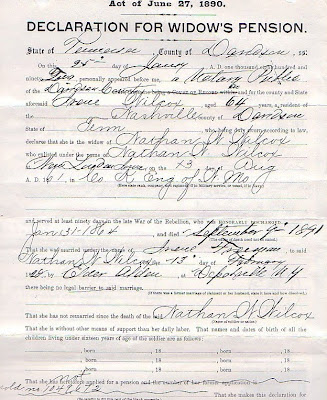 Act of June 27, 1890.
DECLARATION FOR WIDOW'S PENSION.
State of Tennessee, County of Davidson, ss:
On this 25th day of January A. D. one thousand eight hundred and
ninety two personally appeared before me, a Notary Public
of the Davidson County within and for the county and State
aforesaid Irene Wilcox aged 64 years, a resident of
the Nashville County of Davidson
State of Tenn who being duly sworn according to law,
declares that she is the widow of Nathan N. Wilcox
who enlisted under the name of Nathan N. Wilcox
on the 13 of Aug
A. D. 1861, in Co K Eng of Mo
and served at least ninety days in the late War of the Rebellion, who was HONORABLY DISCHARGED
Jan 31-1864 and died September 9th 1891
That she was married under the name of Irene to said
Nathan N. Wilcox on the 13th day of February
18 by Elder at N Y
there being no legal barrier to said marriage.
That she has not remarried since the death of the Nathan N. Wilcox
That she is without other means of support than her daily labor. That names and dates of birth of all the
children living under sixteen years of age of the soldier are as follows:
born , 18 born , 18
born , 18 born , 18
born , 18 born , 18
That she has not heretofore applied for a pension and the number of her former application is
That she makes this declaration for